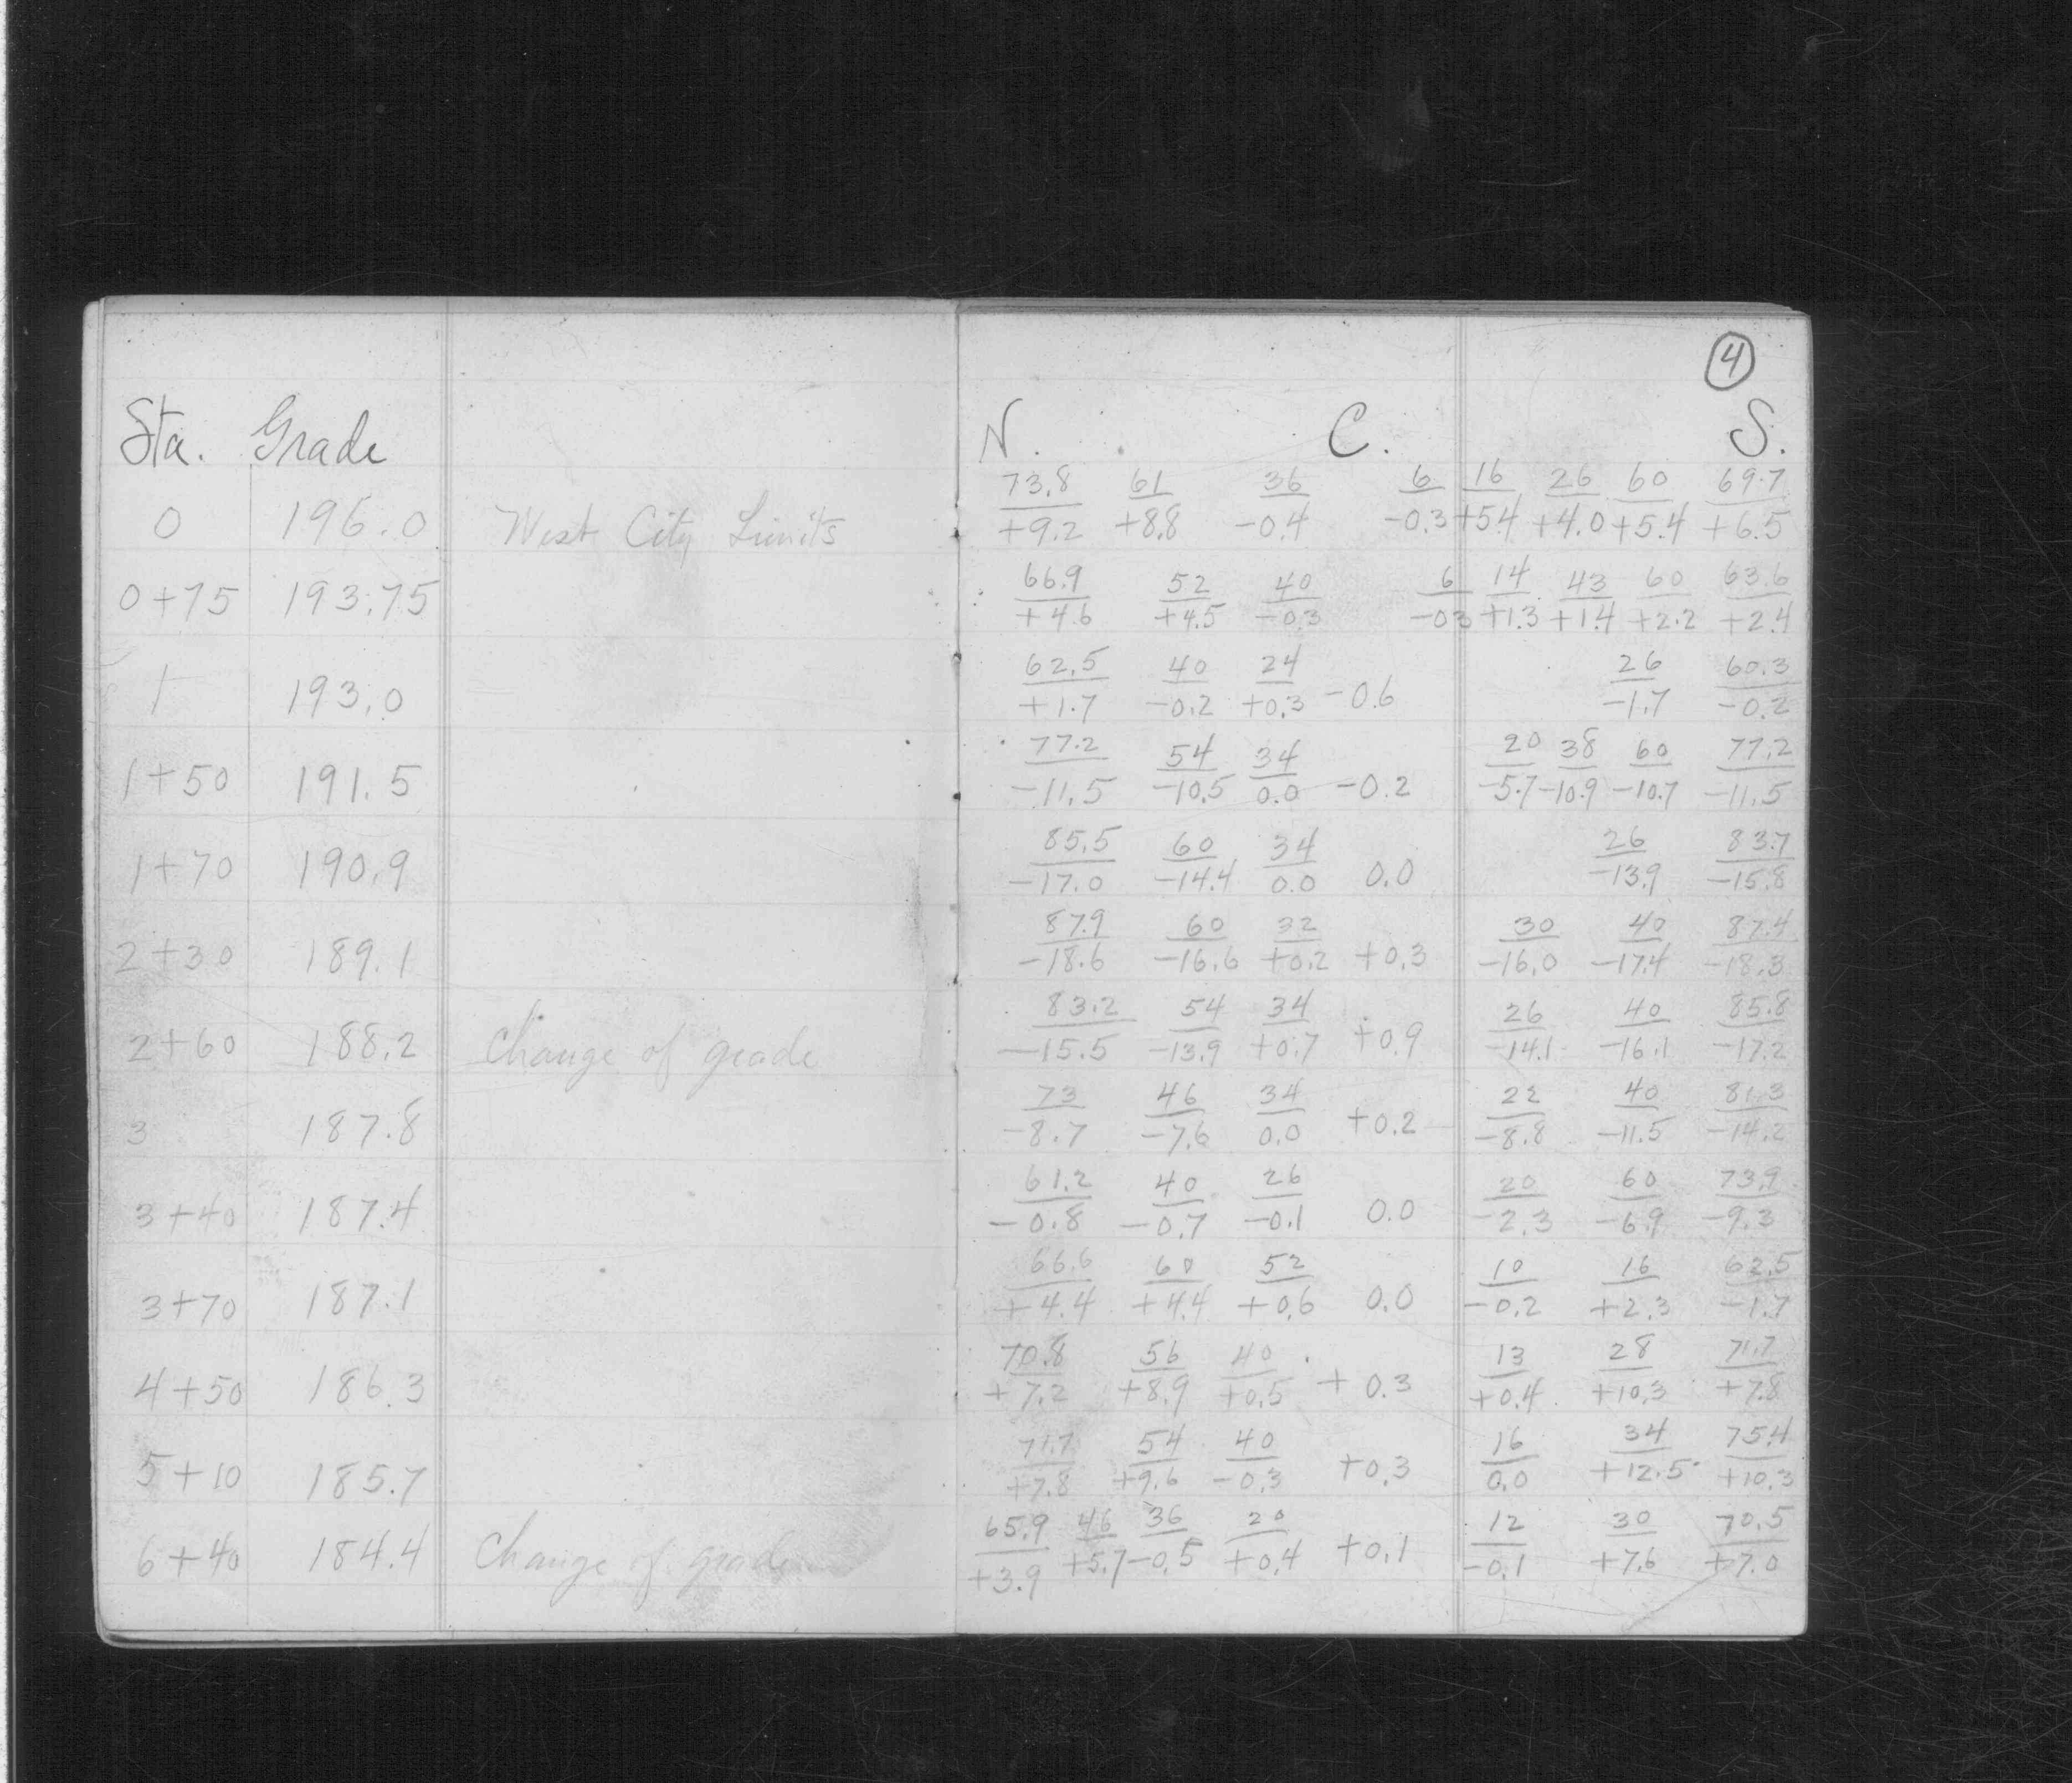 4
Sta. Grade N. C. S.
73.8 61 36 6 16 26 60 69.7
0 196.0 West City Limits +9.2 +8.8 -0.4 -0.3 +5.4 +4.0 +5.4 +6.5
66.9 52 40 6 14 43 60 63.6
0+75 193.75 +4.6 +4.5 -0.3 -03 +1.3 +1.4 +2.2 +2.4
62.5 40 24 26 60.3
1 193.0 +1.7 -0.2 +0.3 -0.6 -1.7 -0.2
77.2 54 34 20 38 60 77.2
1+50 191.5 -11.5 -10.5 0.0 -0.2 -5.7 -10.9 -10.7 -11.5
85.5 60 34 26 83.7
1+70 190.9 -17.0 -14.4 0.0 0.0 -13.9 -15.8
87.9 60 32 30 40 87.4
2+30 189.1 -18.6 -16.6 +0.2 +0.3 -16.0 -17.4 -18.3
83.2 54 34 26 40 85.8
2+60 188.2 Change of grade -15.5 -13.9 +0.7 +0.9 -14.1 -16.1 -17.2
73 46 34 22 40 81.3
3 187.8 -8.7 -7.6 0.0 +0.2 -8.8 -11.5 -14.2
61.2 40 26 20 60 73.9
3+40 187.4 -0.8 -0.7 -0.1 0.0 -2.3 -6.9 -9.3
66.6 60 52 10 16 62.5
3+70 187.1 +4.4 +4.4 +0.6 0.0 -0.2 +2.3 -1.7
70.8 56 40 13 28 71.7
4+50 186.3 +7.2 +8.9 +0.5 +0.3 +0.4 +10.3 +7.8
71.7 54 40 16 34 75.4
5+10 185.7 +7.8 +9.6 -0.3 +0.3 0.0 +12.5 +10.3
65.9 46 36 20 12 30 70.5
6+40 184.4 Change of grade +3.9 +5.7 -0.5 +0.4 +0.1 -0.1 +7.6 +7.0